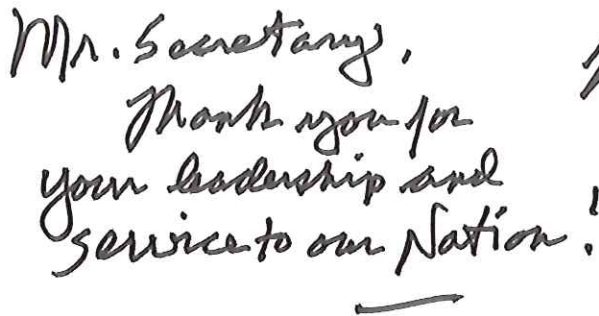 Mr. Secretary,
Thank you for
your leadership and
service to our Nation!